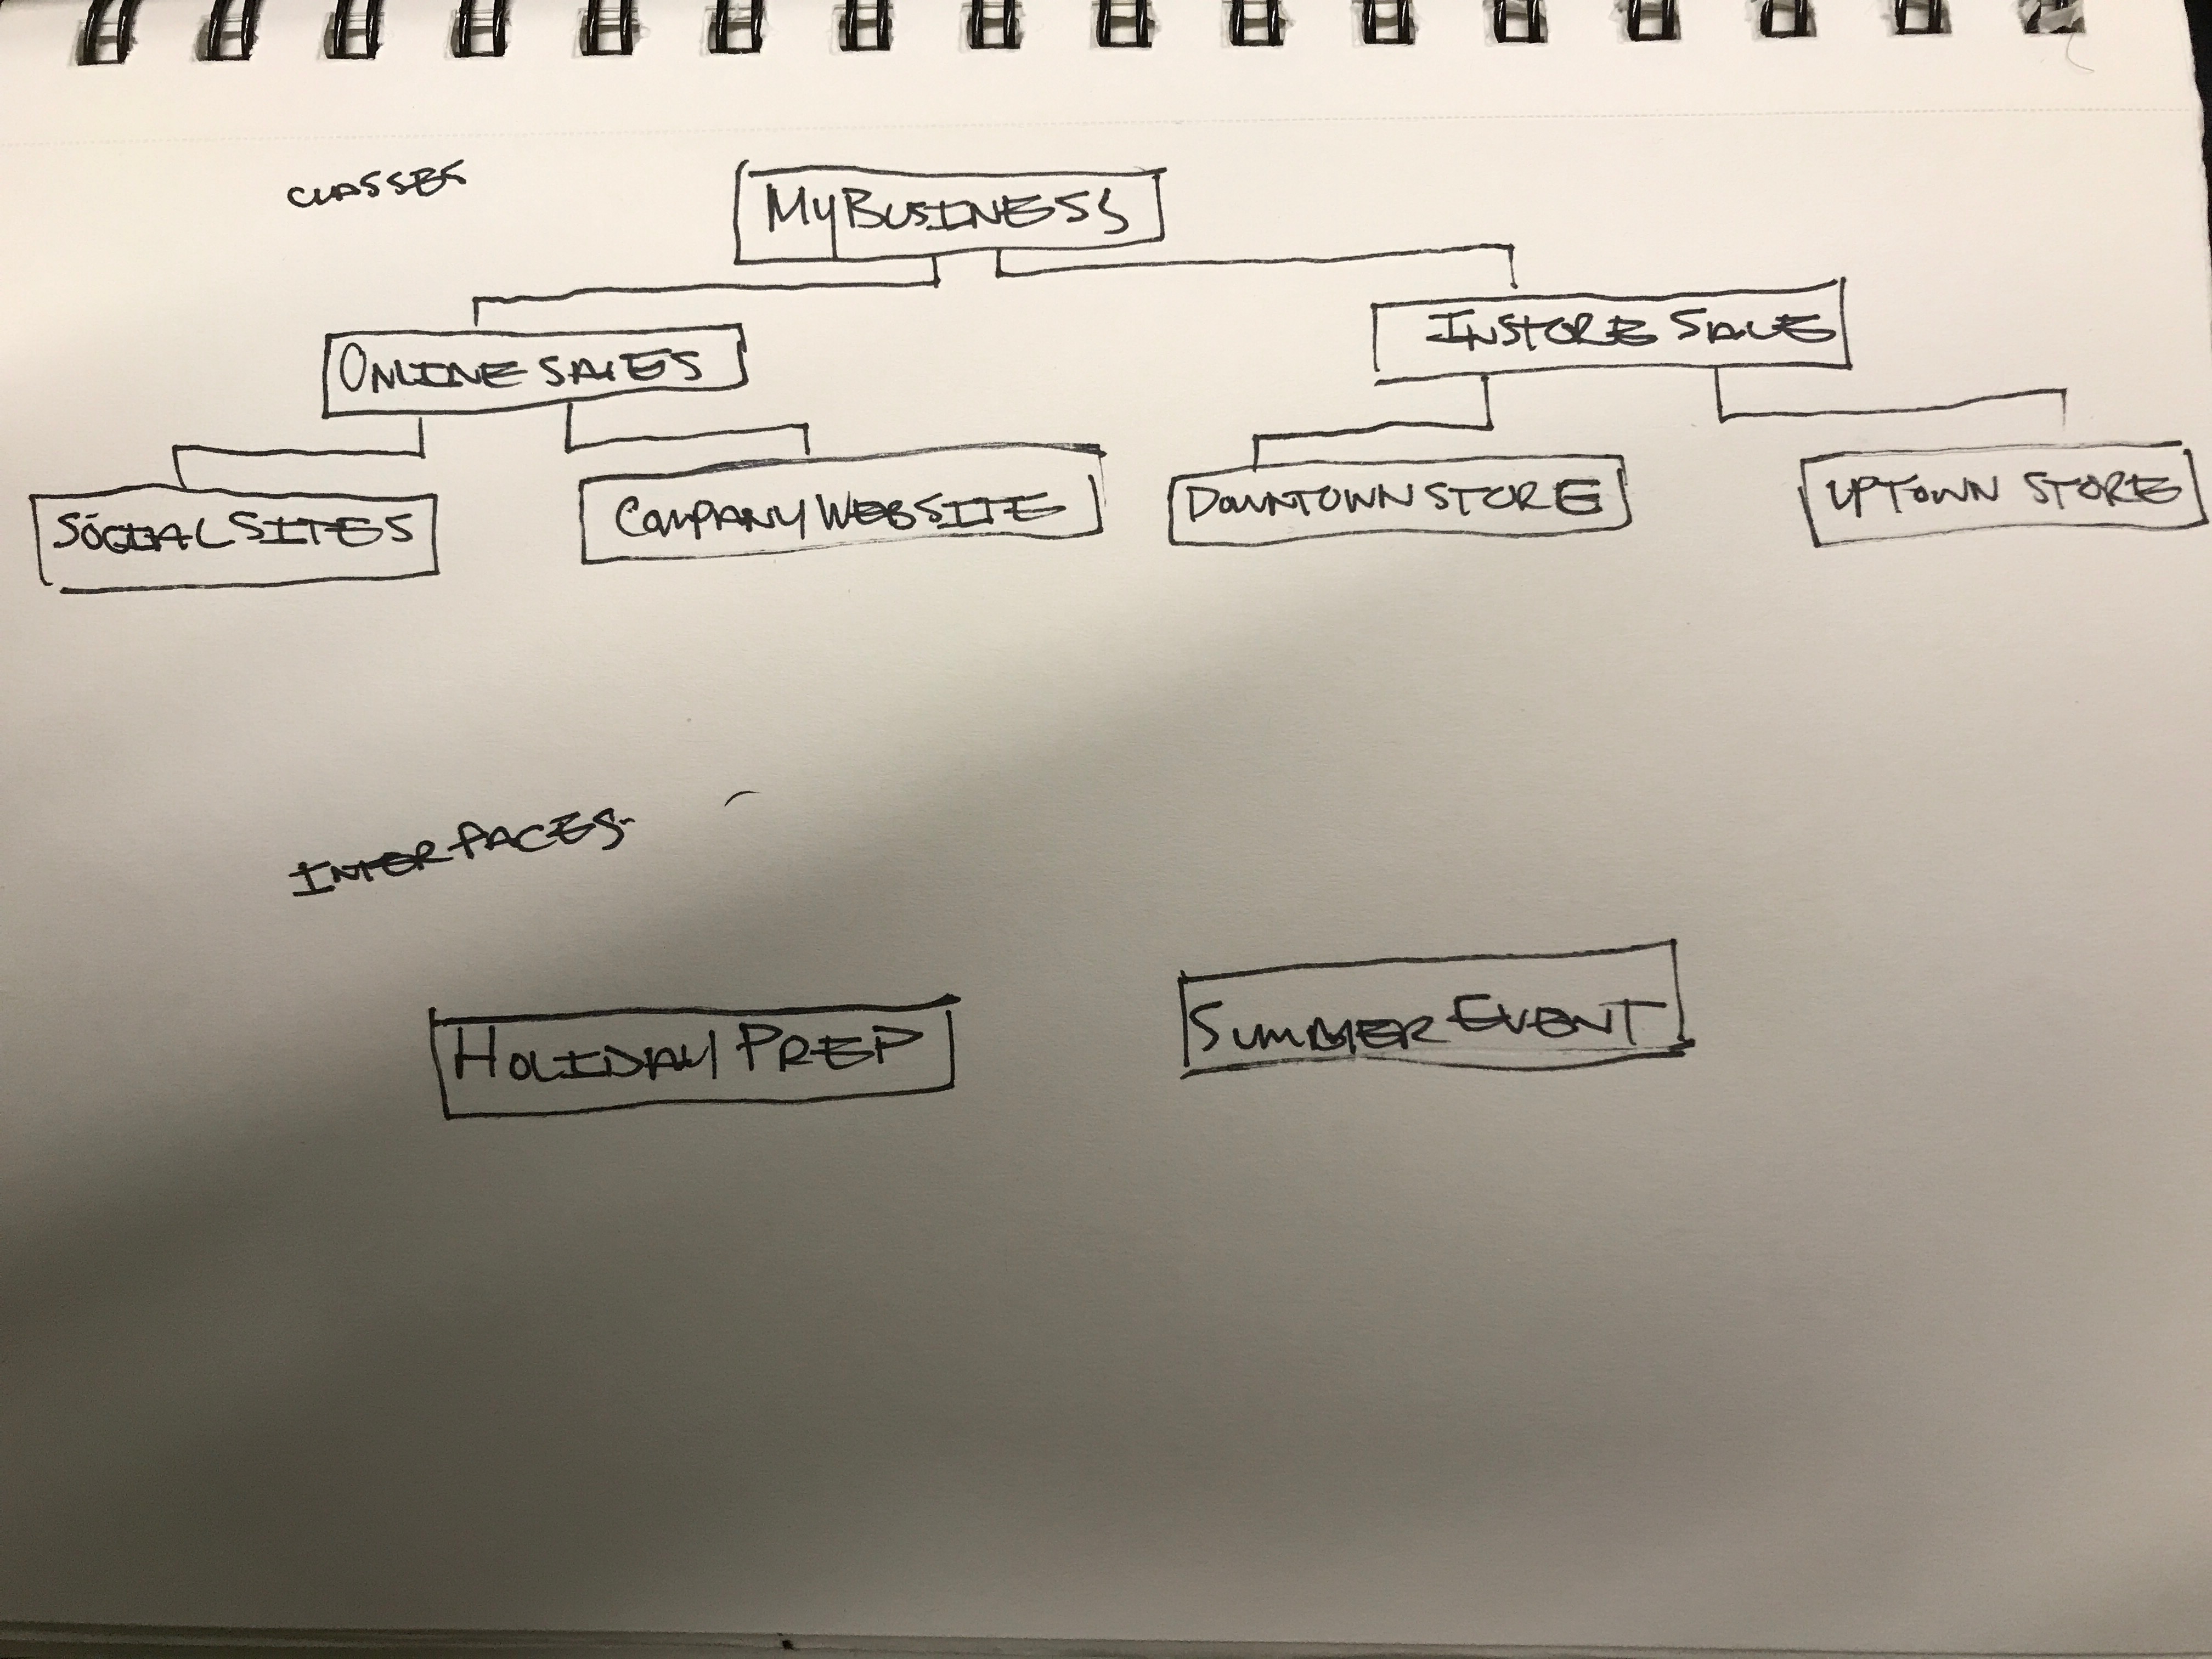 CLASSES
MyBUSINESS
ONLINE SALES
INSTORE SALE
SOCIAL SITES
COMPANY WEBSITE
DOWNTOWN STORE
UPTOWN STORE
INTERFACES
HOLIDAY PREP
SUMMER EVENT